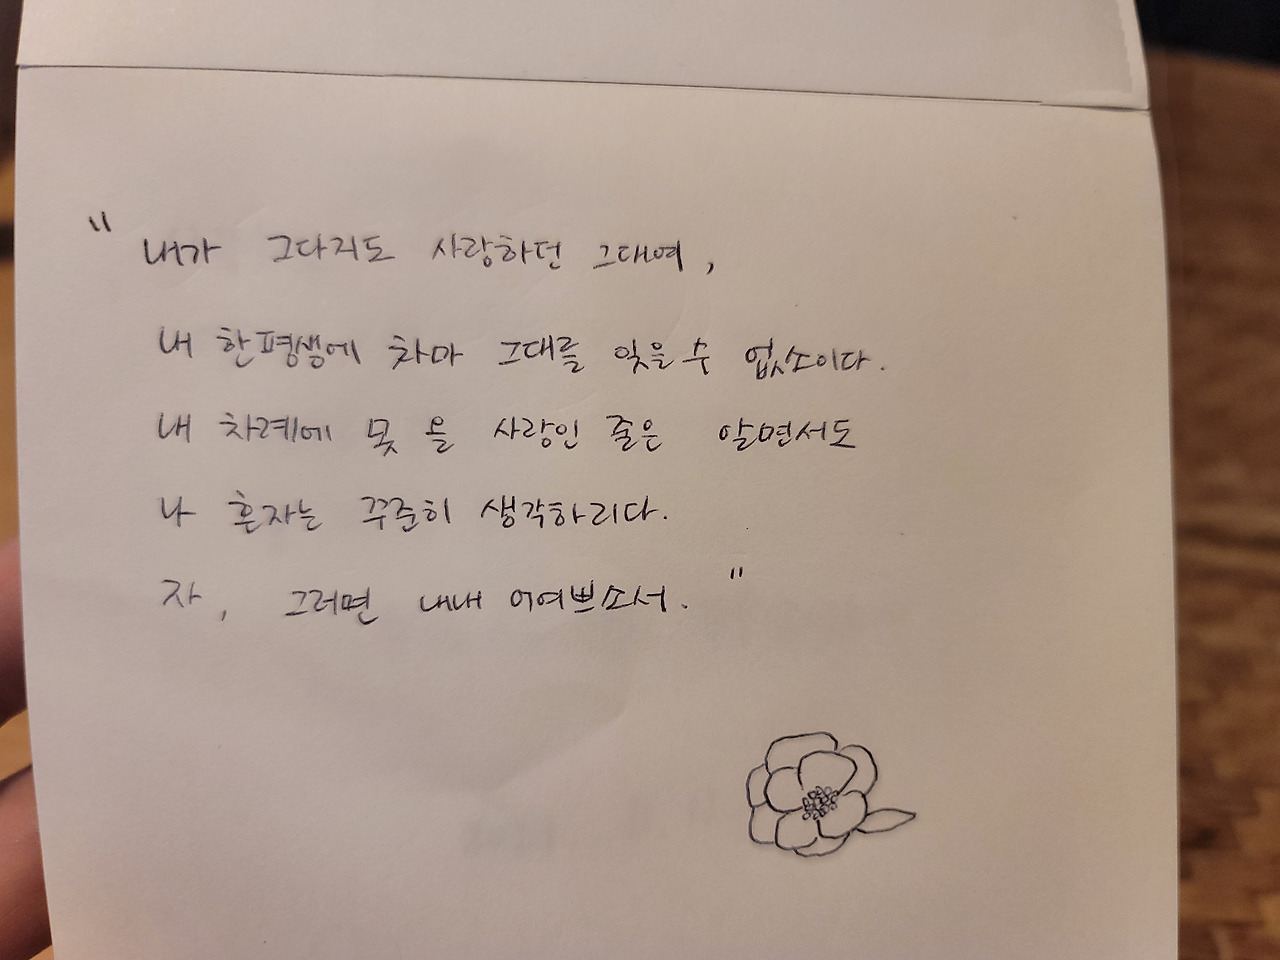 "내가 그다지도 사랑하던 그대여,
내 한평생에 차마 그대를 잊을 수 없소이다.
내 차례에 못 올 사랑인 줄은 알면서도
나 혼자는 꾸준히 생각하리다.
자, 그러면 내내 어여쁘소서."